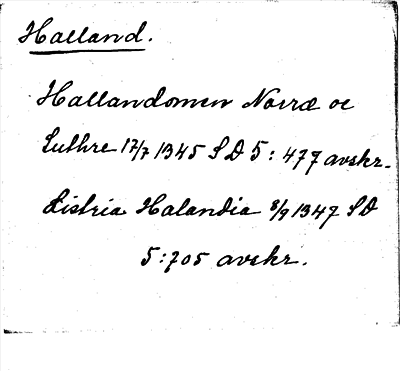 Halland.
Hallandomen Norræ oc
Suthre 17/7 1345 SD 5: 477 avskr.
distria Halandia 8/9 1347 SD
5:705 avskr.